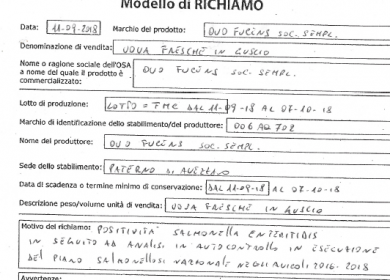 Modello di RICHIAMO
Data: 11.09.2018 Marchio del prodotto: OVO FUCENS SOC. SEMPL.
Denominazione di vendita: UOVA FRESCHE IN GUSCIO
Nome o ragione sociale dell'OSA
a nome del quale il prodotto è
commercializzato: OVO FUCENS SOC. SEMPL.
Lotto di produzione: LOTTO = FMC DAL 11-09-18 AL 07-10-18
Marchio di identificazione dello stabilimento/del produttore: 006 AQ 702
Nome del produttore: OVO FUCENS SOC. SEMPL.
Sede dello stabilimento: PATERNO DI AVEZZANO
Data di scadenza o termine minimo di conservazione: DAL 11-09-18 AL 07-10-18
Descrizione peso/volume unità di vendita: UOVA FRESCHE IN GUSCIO
Motivo del richiamo: POSITIVITA' SALMONELLA ENTERITIDIS
IN SEGUITO AD ANALISI IN AUTOCONTROLLO IN ESECUZIONE
DEL PIANO SALMONELLOSI NAZIONALE NEGLI AVICOLI 2016-2018
Avvertenze: